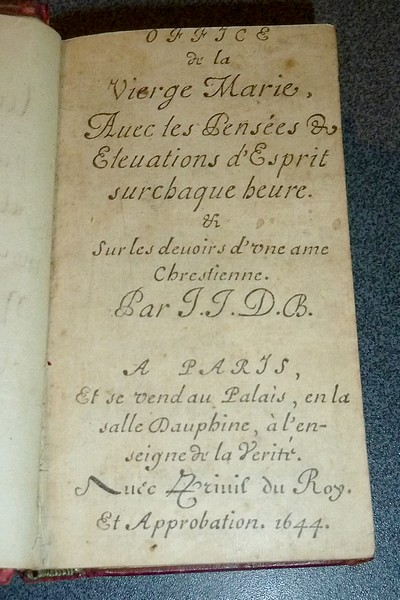 OFFICE
de la
Vierge Marie,
Auec les Pensées &
Eleuations d'Esprit
surchaque heure.
&
Sur les deuoirs d'vne ame
Chrestienne.
Par J.J.D.B.
A PARIS,
Et se vend au Palais, en la
salle Dauphine, à l'en-
seigne de la Verité.
Auéc Priuil du Roy.
Et Approbation. 1644.